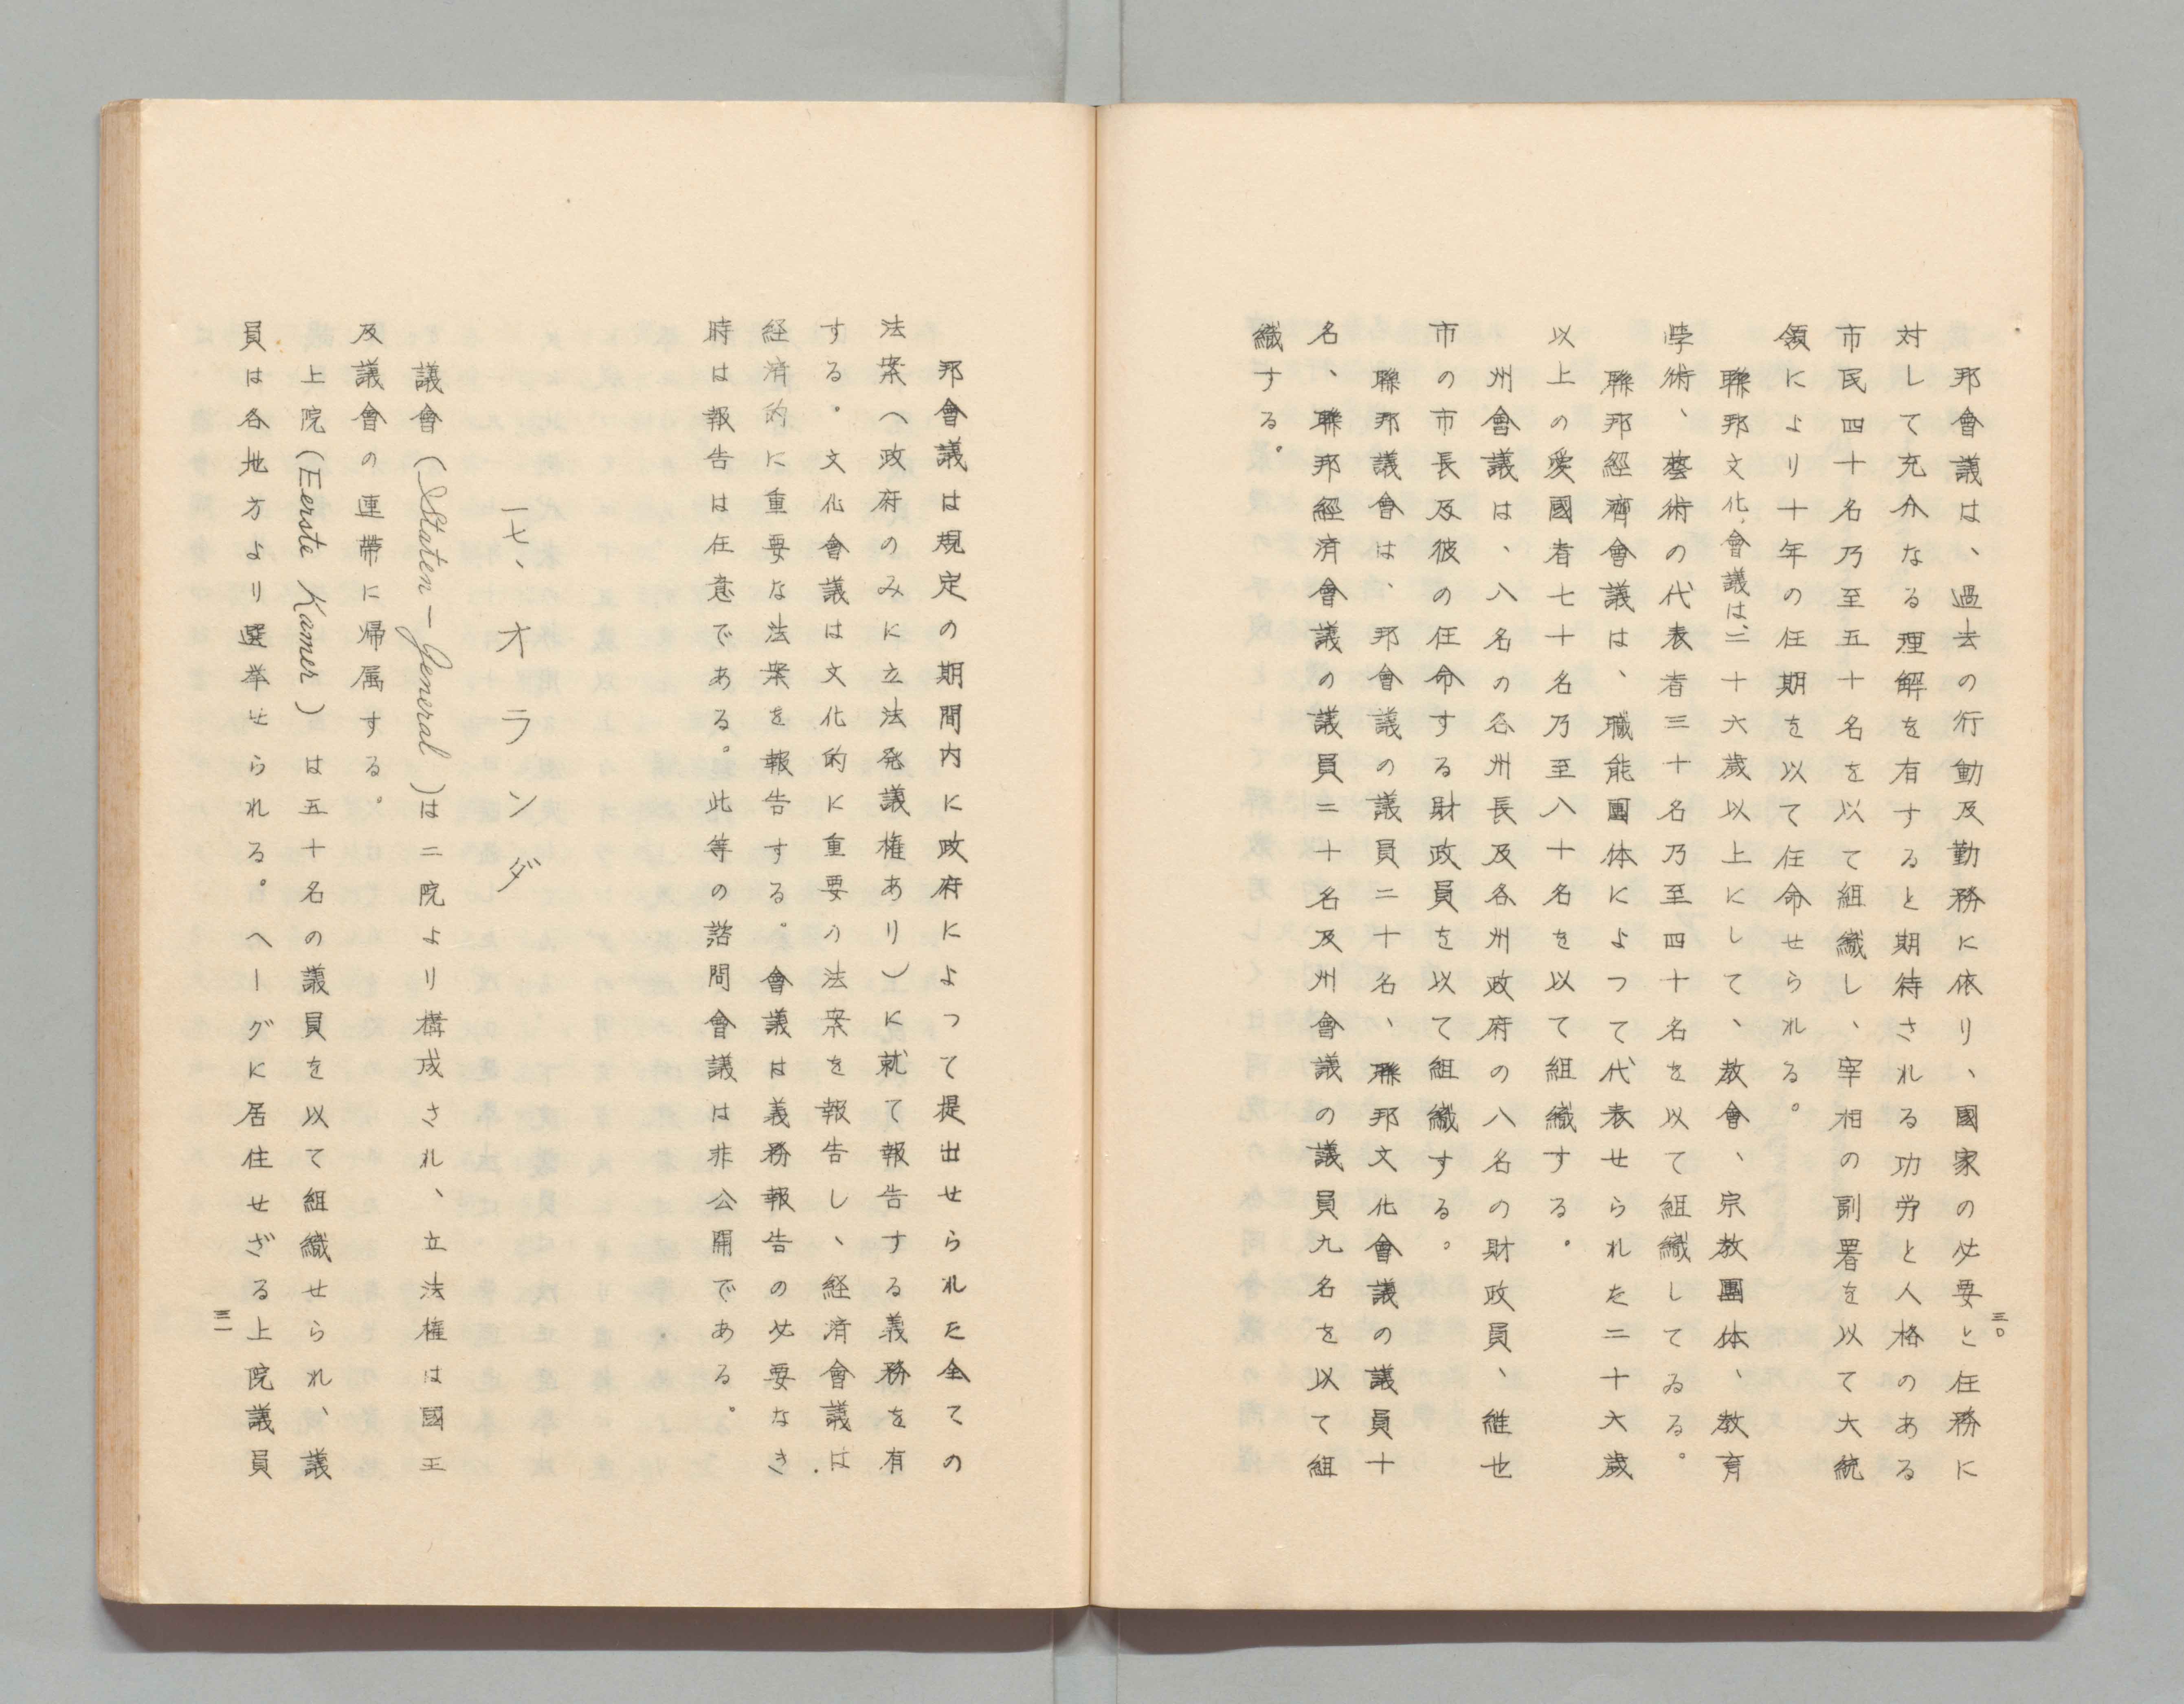 邦會議は、過去の行動及勤務に依り、國家の必要と任務に
対して充分なる理解を有すると期待される功労と人格のある
市民四十名乃至五十名を以て組織し、宰相の副署を以て大統
領により十年の任期を以て任命せられる。
聯邦文化會議は、二十六歳以上にして、教會、宗教團体、教育
学術、藝術の代表者三十名乃至四十名を以て組織してゐる。
聯邦經濟會議は、職能團体によつて代表せられた二十六歳
以上の愛國者七十名乃至八十名を以て組織する。
州會議は、八名の各州長及各州政府の八名の財政員、維也
市の市長及彼の任命する財政員を以て組織する。
聯邦議會は、邦會議の議員二十名、聯邦文化會議の議員十
名、聯邦經済會議の議員二十名及州會議の議員九名を以て組
織する。
三〇
邦會議は規定の期間内に政府によつて提出せられた全ての
法案(政府のみに立法発議権あり)に就て報告する義務を有
する。文化會議は文化的に重要の法案を報告し、経済會議は
経済的に重要な法案を報告する。會議は義務報告の必要なき
時は報告は任意である。此等の諮問會議は非公開である。
一七、オランダ
議會(Staten-General)は二院より構成され、立法権は國王
及議會の連帶に帰属する。
上院(Eerste Kamer)は五十名の議員を以て組織せられ、議
員は各地方より選挙せられる。ヘーグに居住せざる上院議員
三一